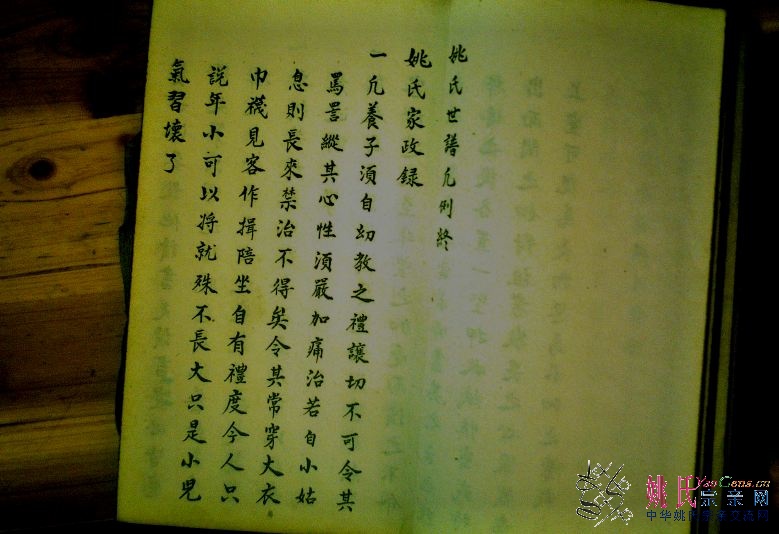 姚氏世譜凡例終
姚氏家政録
一凡養子須自幼教之禮讓切不可令其
罵詈縱其心性須嚴加痛治若自小姑
息則長來禁治不得矣令其常穿大衣
巾襪見客作揖陪坐自有禮度今人只
說年小可以将就殊不長大只是小兒
氣習壞了
姚氏宗亲网
YaoGens.cn